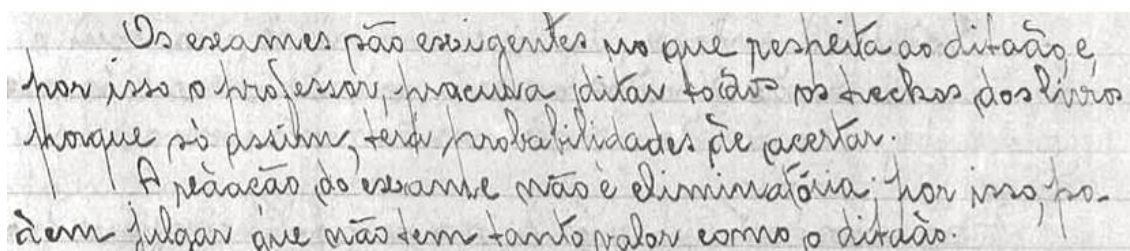 Os exames são exigentes no que respeita ao ditado, e,
por isso o professor, procura ditar todos os trechos dos livros
porque só assim, terá probabilidades de acertar.
A redação do exame não é eliminatória; por isso, po-
dem julgar que não tem tanto valor como o ditado.